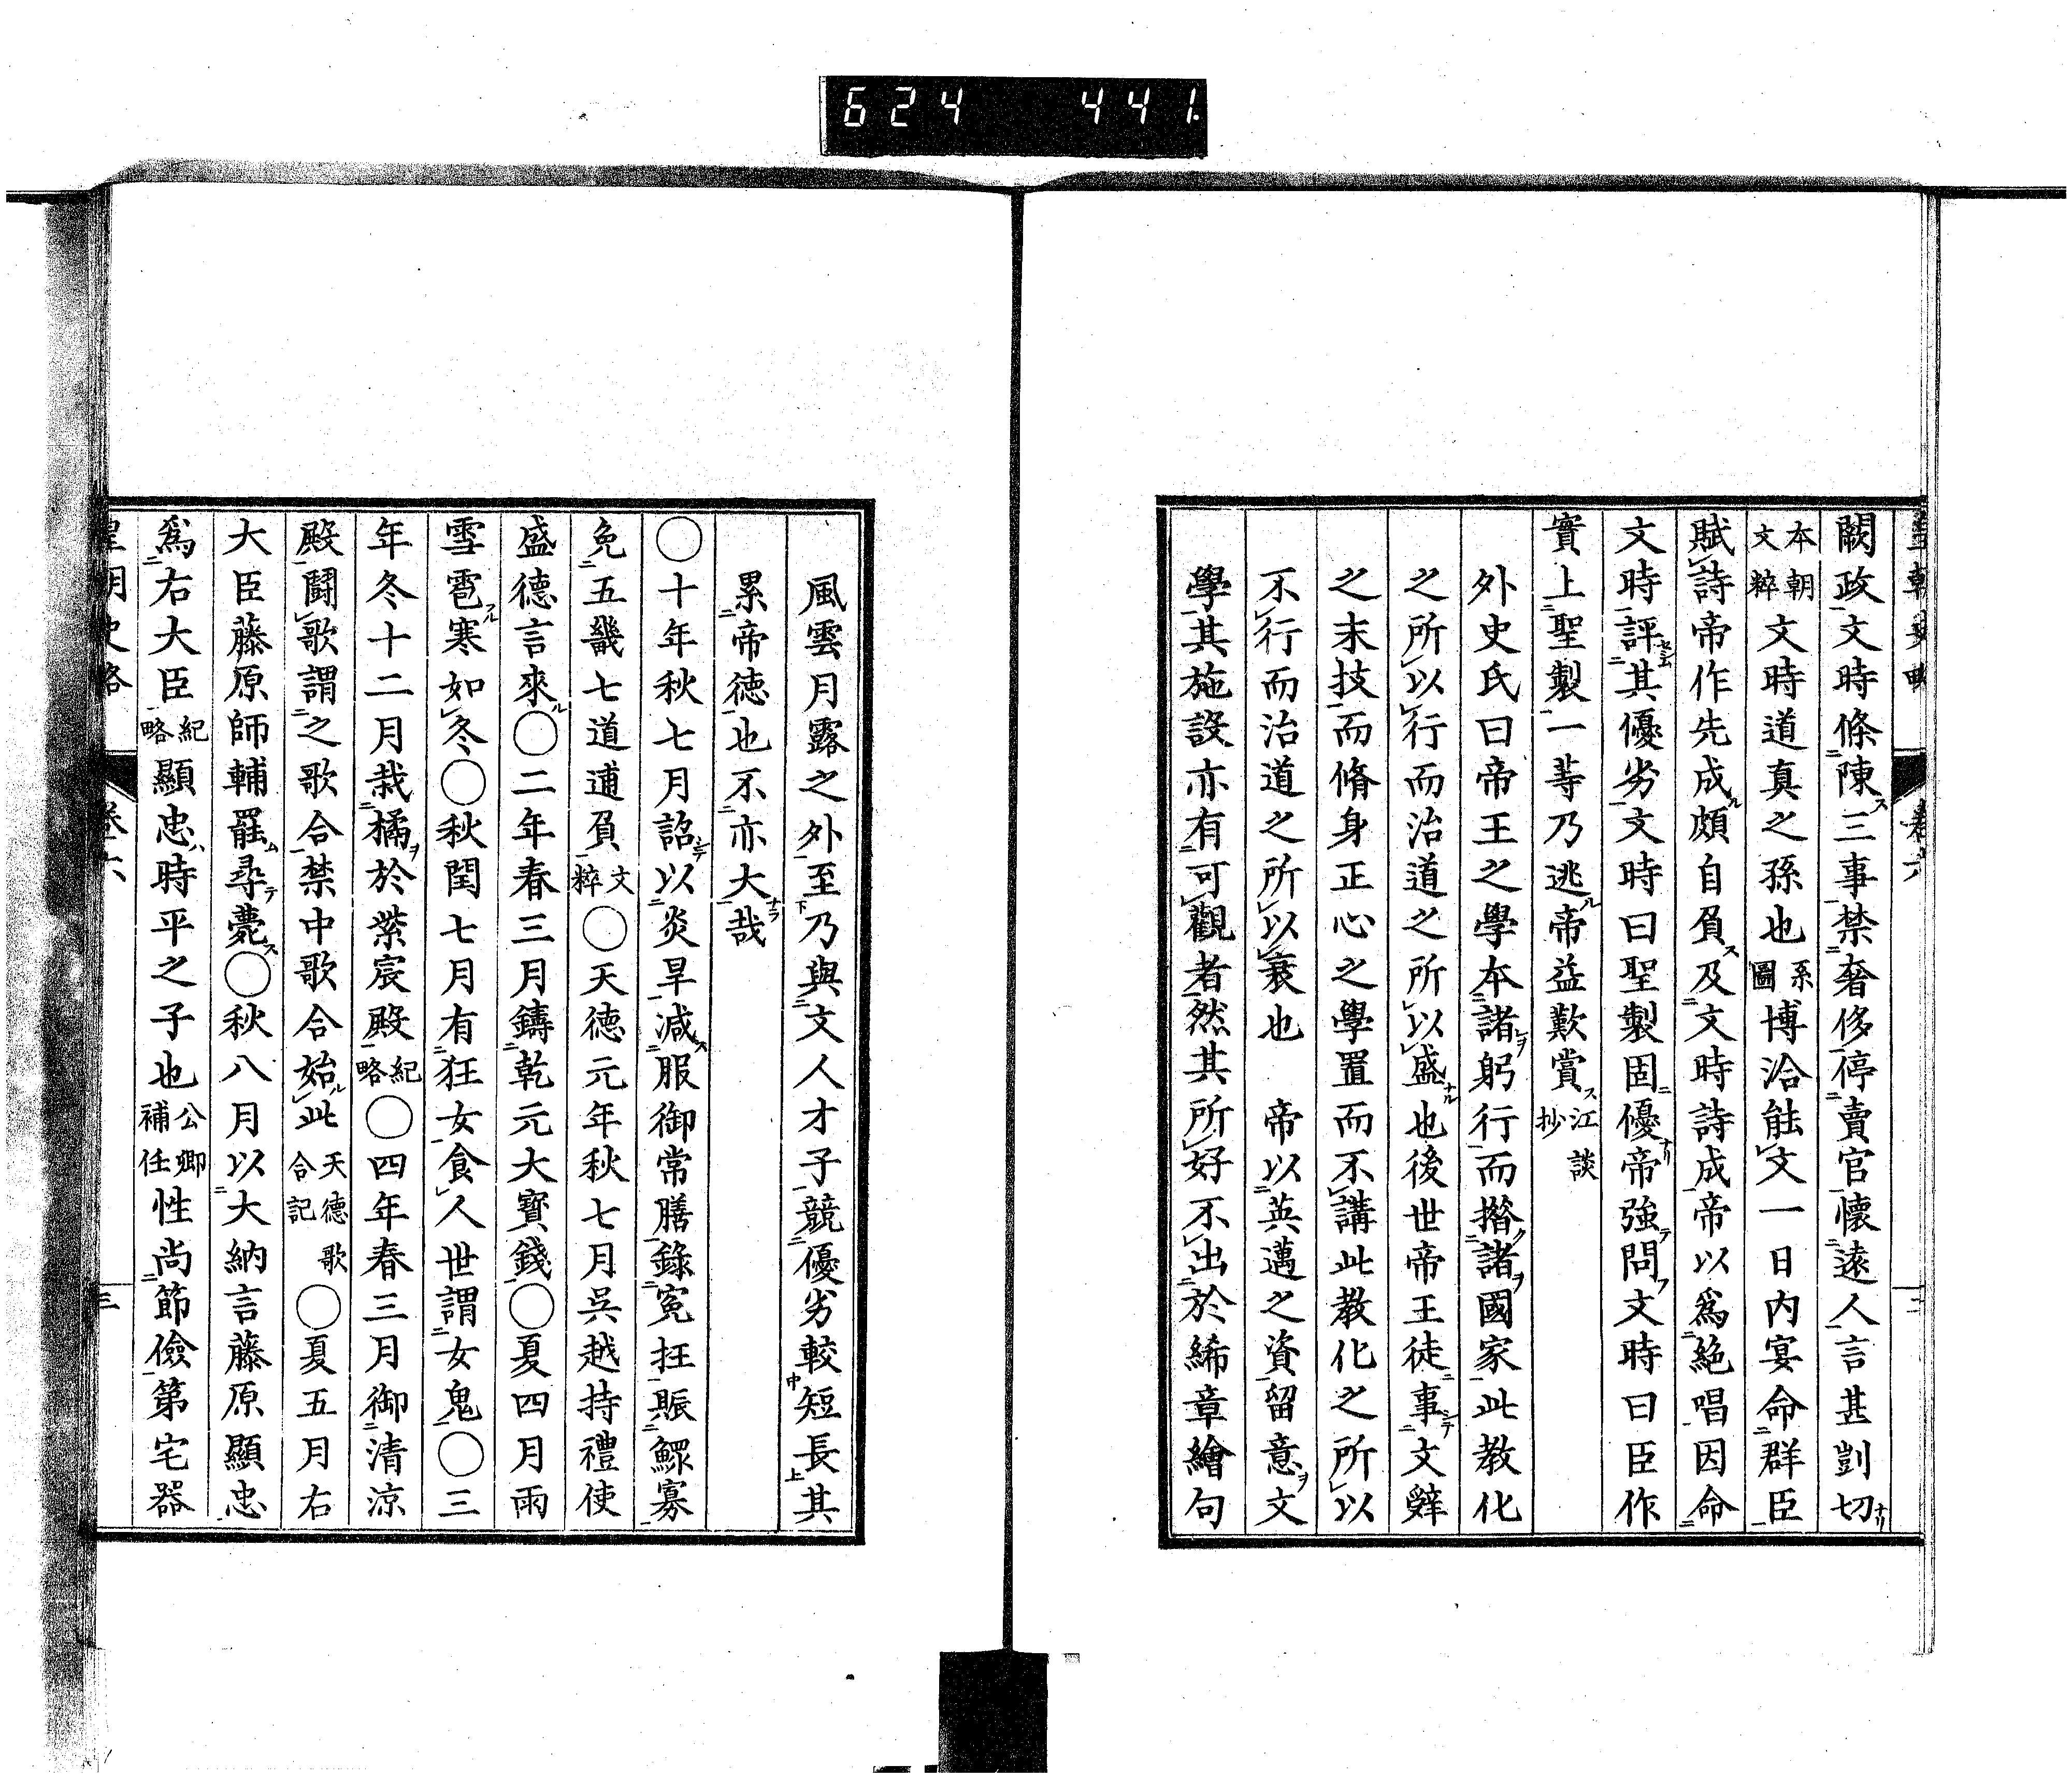 624 441
闕政文時條陳三事禁奢侈停賣官懷遠人言甚剴切
本朝文粹文時道真之孫也系圖博洽能文一日內宴命群臣
賦詩帝作先成頗自負及文時詩成帝以爲絶唱因命
文時評其優劣文時曰聖製固優帝強問文時曰臣作
實上聖製一等乃逃帝益歎賞江談抄
外史氏曰帝王之學本諸躬行而措諸國家此教化
之所以行而治道之所以盛也後世帝王徒事文辭
之末技而脩身正心之學置而不講此教化之所以
不行而治道之所以衰也 帝以英邁之資留意文
學其施設亦有可觀者然其所好不出於絺章繪句
風雲月露之外至乃與文人才子競優劣較短長其
累帝徳也不亦大哉
〇十年秋七月詔以炎旱減服御常膳錄冤枉賑鰥寡
免五畿七道逋負文粹〇天徳元年秋七月吳越持禮使
盛德言來〇二年春三月鑄乾元大寶錢〇夏四月雨
雪雹寒如冬〇秋閏七月有狂女食人世謂女鬼〇三
年冬十二月栽橘於紫宸殿紀略〇四年春三月御清涼
殿鬪歌謂之歌合禁中歌合始此天德歌合記〇夏五月右
大臣藤原師輔罷尋薨〇秋八月以大納言藤原顯忠
爲右大臣紀略顯忠時平之子也公卿補任性尚節儉第宅器